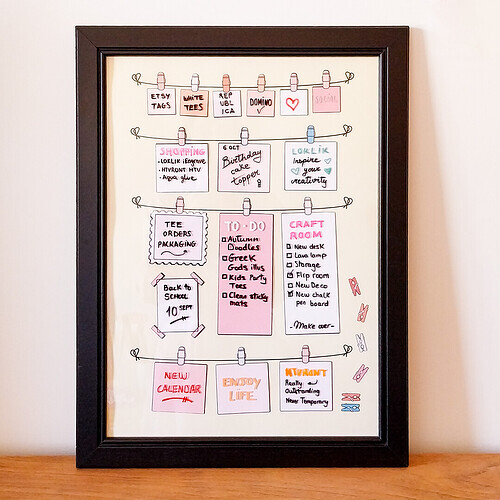 ETSY
TAGS
WHITE
TEES
REP
UBL
ICA
DOMINO
SOCIAL
SHOPPING
- LOKLIK iEngrave
- HTVRONT HTV
- Aqua glue
6 OCT
Birthday
cake
topper
LOKLIK
Inspire
your
creativity
TEE
ORDERS
PACKAGING
TO-DO
Autumn
Doodles
Greek
Gods illus
Kids Party
Tees
Clean sticky
mats
CRAFT
ROOM
New desk
Lava lamp
Storage
Flip room
New Deco
New chalk
pen board
- Make over -
BACK TO
SCHOOL
10 SEPT
NEW
CALENDAR
ENJOY
LIFE
HTVRONT
Really
Outstanding
Never Temporary